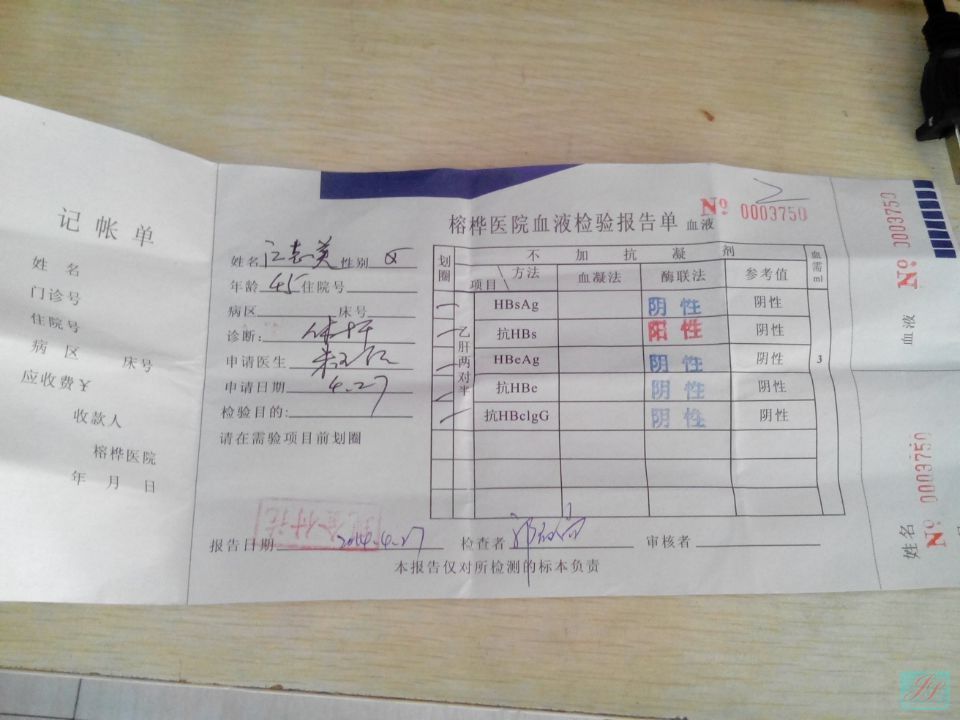 记帐单
姓 名
门诊号
住院号
病 区 床号
应收费¥
收款人
榕桦医院
年 月 日
榕桦医院血液检验报告单 血液
No 0003750
姓名 性别 女
年龄 45 住院号
病区 床号
诊断: 体检
申请医生
申请日期 4.27
检验目的:
请在需验项目前划圈
划圈 不加抗凝剂 血需ml
项目 方法 血凝法 酶联法 参考值
乙肝两对半
HBsAg 阴性 阴性
抗HBs 阳性 阴性
HBeAg 阴性 阴性 3
抗HBe 阴性 阴性
抗HBclgG 阴性 阴性
现金付讫
报告日期 2014.4.27 检查者 审核者
本报告仅对所检测的标本负责
No 0003750
血液
姓名 No 0003750